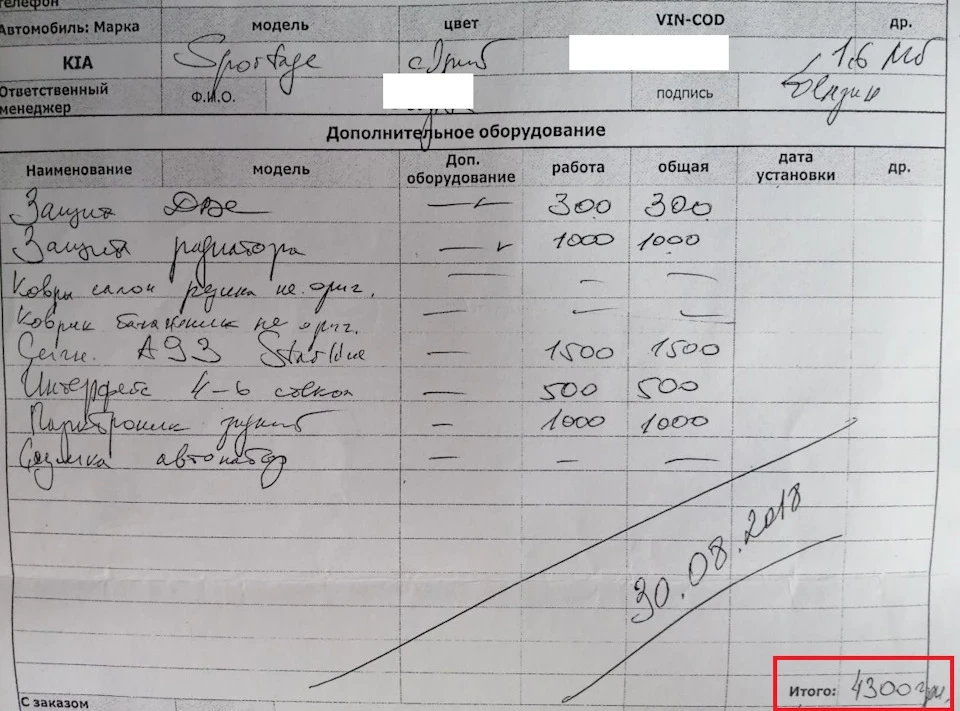 телефон
Автомобиль: Марка модель цвет VIN-COD др.
KIA Sportage серый 1.6 МБ
Ответственный менеджер Ф.И.О. подпись бензин
Дополнительное оборудование
Наименование модель Доп. оборудование работа общая дата установки др.
Защита Две — 300 300
Защита радиатора — 1000 1000
Ковры салон резина не ориг. — — —
Коврик багажника не ориг. — — —
Сигн. A93 Starline — 1500 1500
Интерфейс 4-ь стекол — 500 500
Парктроник задний — 1000 1000
Сумка автонабор — — —
30.08.2018
Итого: 4300 грн.
С заказом